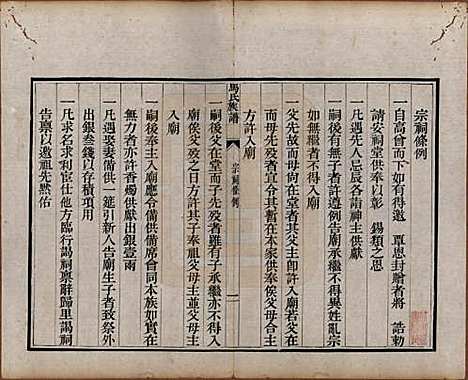 宗祠條例
一自高曾而下如有得邀 覃恩封贈者將 誥勅
請安祠堂供奉以彰 錫類之恩
一凡遇先人忌辰各詣神主供獻
一嗣後如有無子者許遵例告廟承繼不得異姓亂宗
如無繼者不得入廟
一父先故而母在堂者其父主即許入廟若父在
而母先歿者應令宜其暫在本家供奉俟父歿
方許入廟
馬氏族譜
宗祠條例
一嗣後父在堂而子先歿者雖有子承繼亦不得入
廟俟父歿之日方許其子奉祖父母主並父母主
入廟
一嗣後奉主入廟應令備供備席會同本族如實在
無力者亦許香燭供獻出銀壹兩
一凡遇娶妻備供一筵引新人告廟生子者致祭外
出銀叁錢以存積項用
一凡求名求利宦仕他方臨行謁祠奠辭歸里謁祠
告禀以邀祖先黙佑